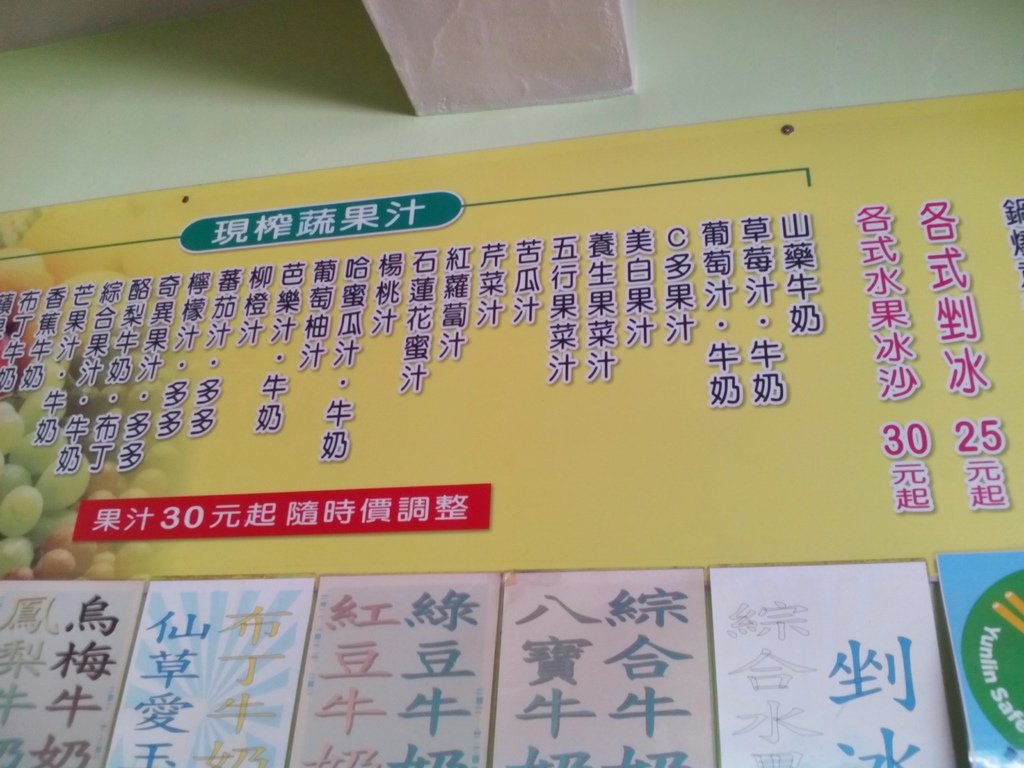 鍋燒
各式剉冰 25元起
各式水果冰沙 30元起
現榨蔬果汁
山藥牛奶
草莓汁．牛奶
葡萄汁．牛奶
C多果汁
美白果汁
養生果菜汁
五行果菜汁
苦瓜汁
芹菜汁
紅蘿蔔汁
石蓮花蜜汁
楊桃汁
哈蜜瓜汁．牛奶
葡萄柚汁
芭樂汁．牛奶
柳橙汁
蕃茄汁．多多
檸檬汁．多多
奇異果汁．多多
酪梨牛奶．布丁
綜合果汁．牛奶
芒果汁．牛奶
香蕉牛奶
布丁牛奶
牛奶
果汁30元起 隨時價調整
剉冰
綜合水果
綜合牛奶
八寶牛奶
綠豆牛奶
紅豆牛奶
布丁牛奶
仙草愛玉
烏梅牛奶
鳳梨牛奶
Yunlin Safe